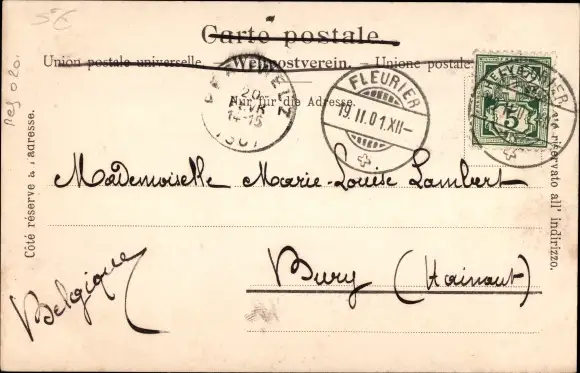 5€
Carte postale
Union postale universelle. — Weltpostverein. — Unione postale
Nur für die Adresse.
20
14-15
1901
FLEURIER
19.II.01.XII—
FLEURIER
5
Côté réservé à l'adresse.
riservato all' indirizzo.
Mademoiselle Marie-Louise Lambert
Bury (Hainaut)
Belgique